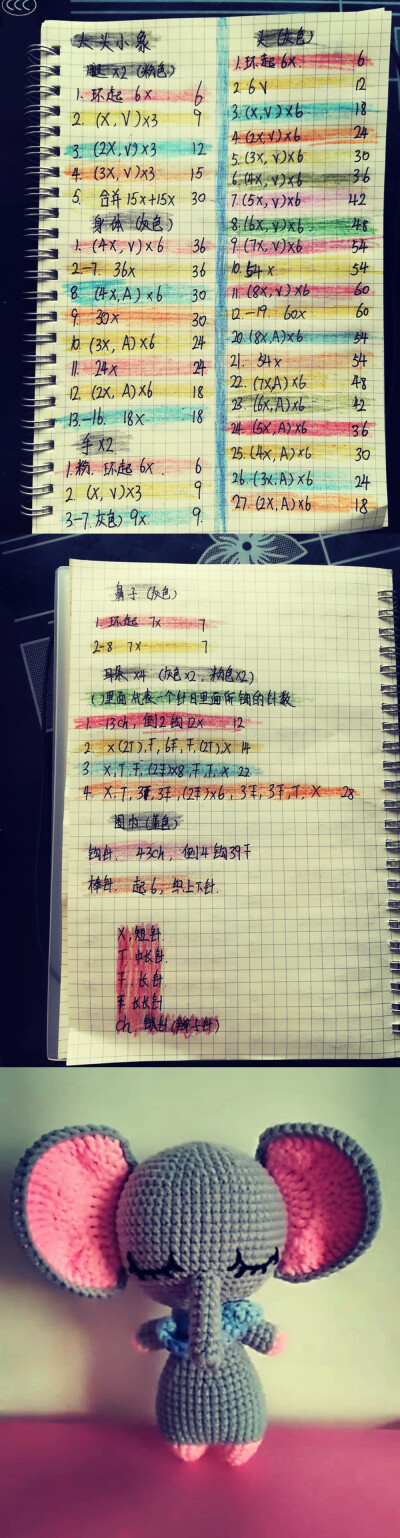 大头小象
腿x2 (粉色)
1. 环起 6x 6
2. (X, V)x3 9
3. (2X, V)x3 12
4. (3X, V)x3 15
5. 合并 15x+15x 30
身体 (灰色)
1. (4X, V)x6 36
2-7. 36x 36
8. (4X, A)x6 30
9. 30x 30
10. (3X, A)x6 24
11. 24x 24
12. (2X, A)x6 18
13.-16. 18x 18
手x2
1. 粉. 环起 6x. 6
2 (X, V)x3 9
3-7. 灰色 9x. 9.
头 (灰色)
1. 环起 6x. 6
2. 6V 12
3. (X, V)x6 18
4. (2X, V)x6 24
5. (3X, V)x6 30
6. (4X, V)x6 36
7. (5X, V)x6 42
8. (6X, V)x6 48
9. (7X, V)x6 54
10. 54x 54
11. (8X, V)x6 60
12-19. 60x 60
20. (8X, A)x6 54
21. 54x 54
22. (7X, A)x6 48
23. (6X, A)x6 42
24. (5X, A)x6 36
25. (4X, A)x6 30
26. (3X, A)x6 24
27. (2X, A)x6 18
鼻子 (灰色)
1. 环起 7x 7
2-8 7x 7
耳朵x4 (灰色x2, 粉色x2)
( )里面代表一个针目里面所钩的针数
1. 13ch, 倒2钩12x 12
2 X(2T), 干, 6干, 干, (2T), X 14
3 X, T, 干, (2干)x8, 干, T, X 22
4. X, T, 3干, (2干)x6, 3干, T, X 28
围巾 (蓝色)
钩针. 43ch, 倒4钩39干
棒针. 起6, 织上下针.
X, 短针.
T. 中长针.
干. 长针.
手 长长针
ch. 锁针 (辫子针)